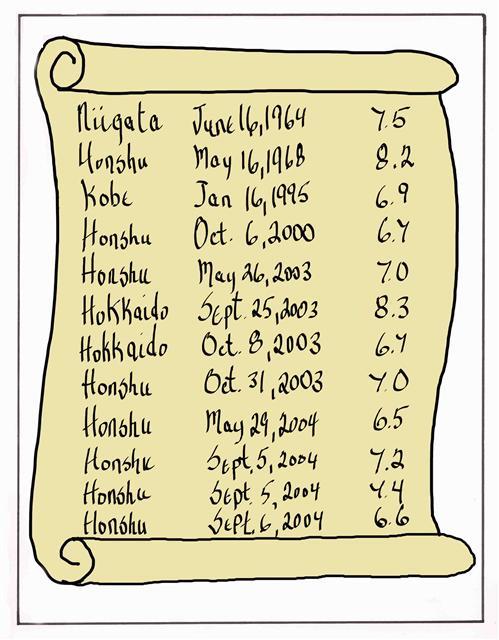 Niigata June 16, 1964 7.5
Honshu May 16, 1968 8.2
Kobe Jan 16, 1995 6.9
Honshu Oct. 6, 2000 6.7
Honshu May 26, 2003 7.0
Hokkaido Sept. 25, 2003 8.3
Hokkaido Oct. 8, 2003 6.7
Honshu Oct. 31, 2003 7.0
Honshu May 29, 2004 6.5
Honshu Sept. 5, 2004 7.2
Honshu Sept. 5, 2004 7.4
Honshu Sept. 6, 2004 6.6